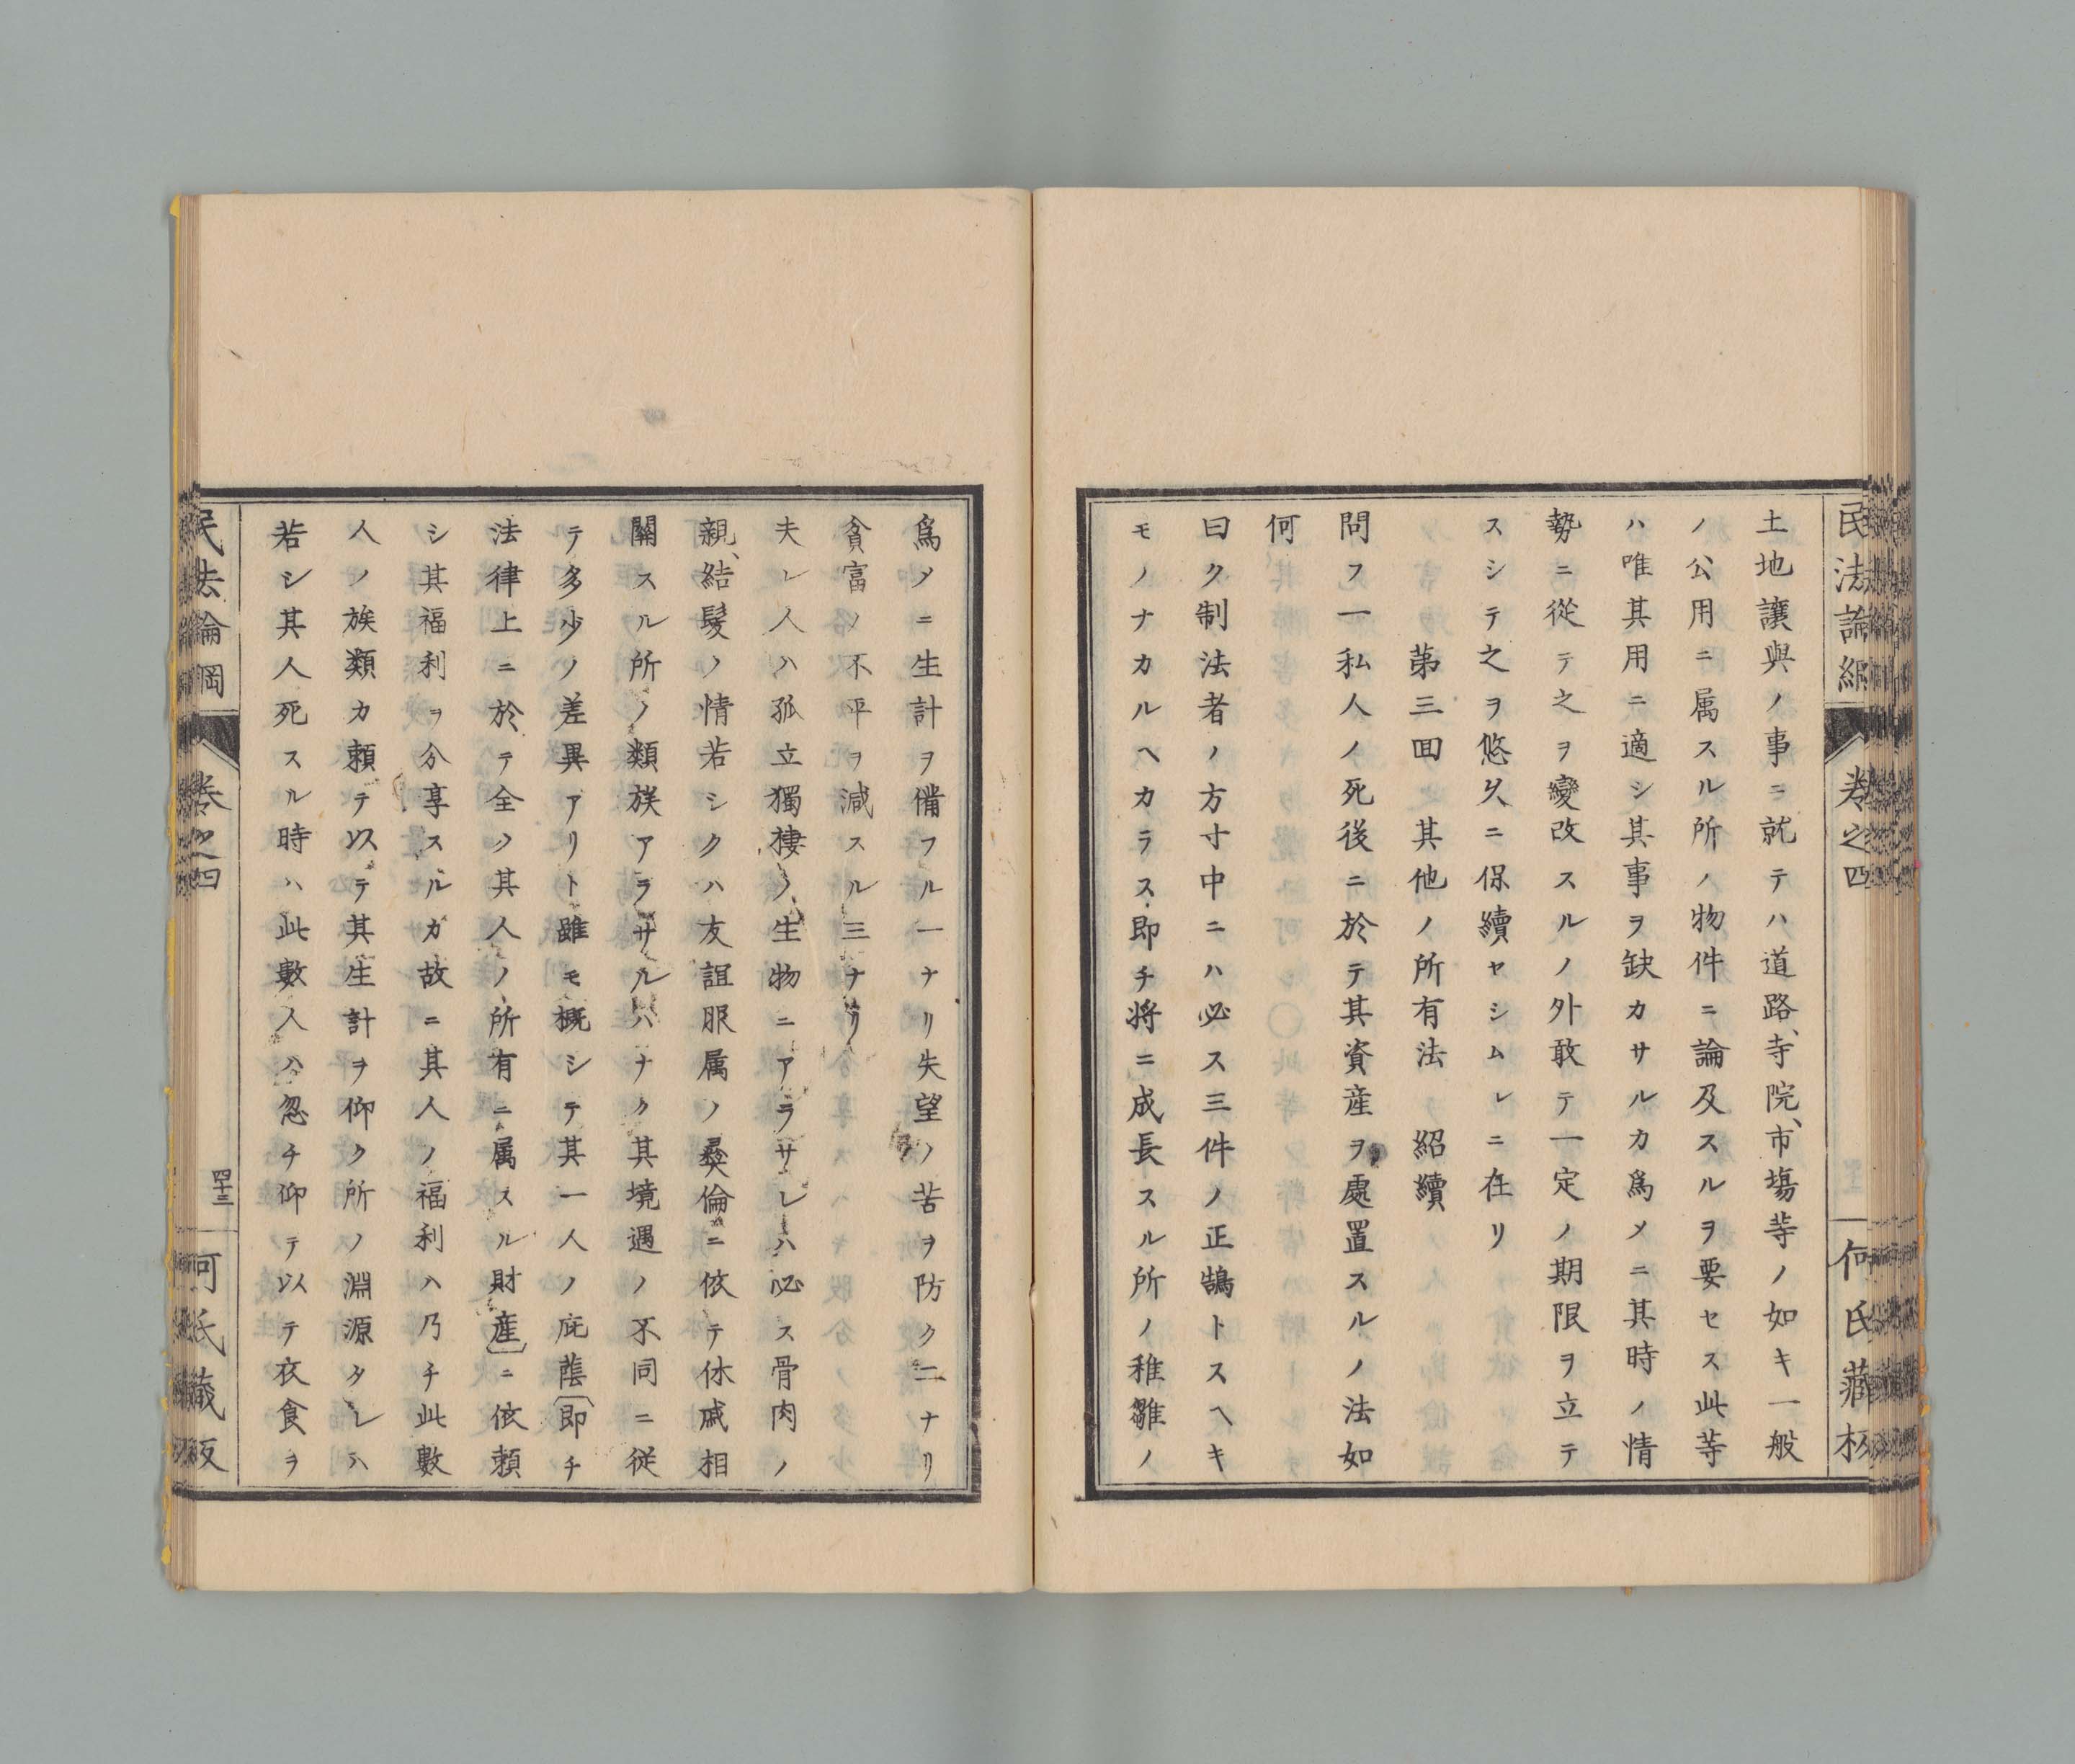 民法論綱
卷之四
何氏藏板
土地讓與ノ事ニ就テハ道路、寺院、市塲等ノ如キ一般
ノ公用ニ属スル所ノ物件ニ論及スルヲ要セス此等
ハ唯其用ニ適シ其事ヲ缺カサルカ爲メニ其時ノ情
勢ニ從テ之ヲ變改スルノ外敢テ一定ノ期限ヲ立テ
スシテ之ヲ悠久ニ保續セシムレニ在リ
第三回其他ノ所有法 紹續
問フ一私人ノ死後ニ於テ其資産ヲ處置スルノ法如
何
曰ク制法者ノ方寸中ニハ必ス三件ノ正鵠トスヘキ
モノナカルヘカラス即チ将ニ成長スル所ノ稚雛ノ
爲メニ生計ヲ備フル一ナリ失望ノ苦ヲ防ク二ナリ
貧富ノ不平ヲ減スル三ナリ
夫レ人ハ孤立獨棲ノ生物ニアラサレハ必ス骨肉ノ
親、結髮ノ情若シクハ友誼服属ノ彛倫ニ依テ休戚相
關スル所ノ類族アラサルハナク其境遇ノ不同ニ從
テ多少ノ差異アリト雖モ概シテ其一人ノ庇蔭〔即チ
法律上ニ於テ全ク其人ノ所有ニ属スル財産〕ニ依頼
シ其福利ヲ分享スルガ故ニ其人ノ福利ハ乃チ此數
人ノ族類カ頼テ以テ其生計ヲ仰ク所ノ淵源タレハ
若シ其人死スル時ハ此數人ハ忽チ仰テ以テ衣食ヲ
民法論綱
卷之四
四十三
何氏藏板